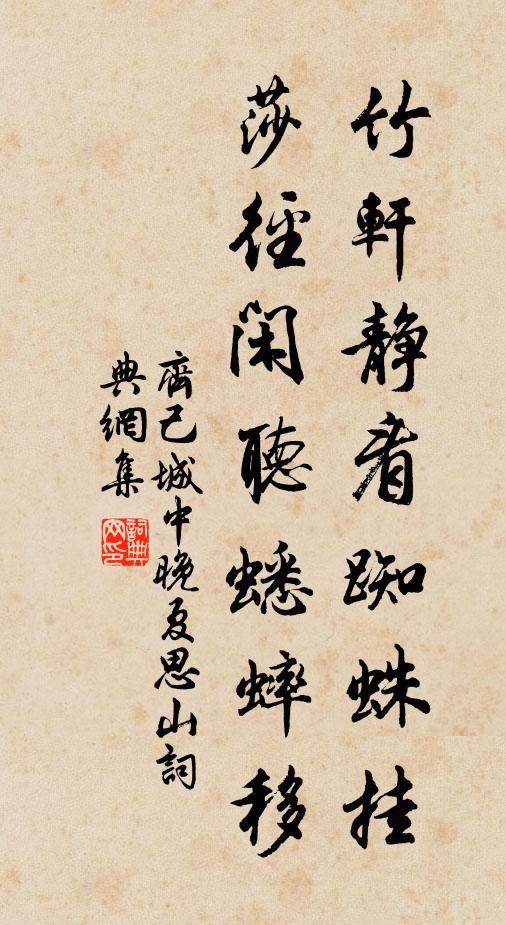 竹軒靜看踟蛛挂
莎徑閑聽蟋蟀移
齊己城中晚夏思山詞
典網集
詞典網印